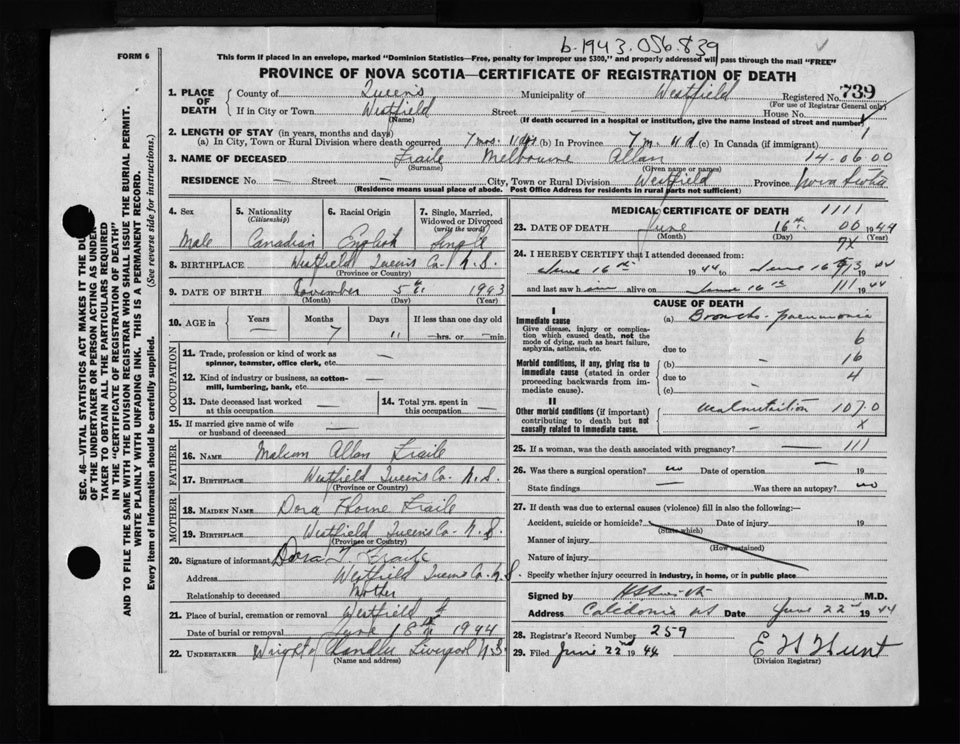 b. 1943.056.839
FORM 6
This form if placed in an envelope, marked "Dominion Statistics—Free, penalty for improper use $300," and properly addressed will pass through the mail "FREE"
PROVINCE OF NOVA SCOTIA—CERTIFICATE OF REGISTRATION OF DEATH
1. PLACE OF DEATH
County of Queens Municipality of Westfield Registered No. 739
(For use of Registrar General only)
If in City or Town Westfield Street House No.
(Name) (If death occurred in a hospital or institution, give the name instead of street and number)
2. LENGTH OF STAY (in years, months and days)
(a) In City, Town or Rural Division where death occurred 7 mos. 11 dys (b) In Province 7 m 11 d (c) In Canada (if immigrant)
3. NAME OF DECEASED Melbourne Allan 14-06.00
(Surname) (Given name or names)
RESIDENCE No. — Street — City, Town or Rural Division Westfield Province Nova Scotia
(Residence means usual place of abode. Post Office Address for residents in rural parts not sufficient)
4. Sex Male
5. Nationality (Citizenship) Canadian
6. Racial Origin English
7. Single, Married, Widowed or Divorced (write the word) Single
8. BIRTHPLACE Westfield Queens Co. N.S.
(Province or Country)
9. DATE OF BIRTH November 5th 1943
(Month) (Day) (Year)
10. AGE in Years — Months 7 Days 11 If less than one day old —hrs. or —min.
OCCUPATION
11. Trade, profession or kind of work as spinner, teamster, office clerk, etc. —
12. Kind of industry or business, as cotton-mill, lumbering, bank, etc. —
13. Date deceased last worked at this occupation —
14. Total yrs. spent in this occupation —
15. If married give name of wife or husband of deceased —
FATHER
16. NAME Allan
17. BIRTHPLACE Westfield Queens Co. N.S.
(Province or Country)
MOTHER
18. MAIDEN NAME Dora
19. BIRTHPLACE Westfield Queens Co. N.S.
(Province or Country)
20. Signature of informant Dora
Address Westfield Queens Co. N.S.
Relationship to deceased Mother
21. Place of burial, cremation or removal Westfield
Date of burial or removal June 18th 1944
22. UNDERTAKER Chandler Liverpool N.S.
(Name and address)
MEDICAL CERTIFICATE OF DEATH 1111
23. DATE OF DEATH June 16th 00 1944
(Month) (Day) (Year)
7X
24. I HEREBY CERTIFY that I attended deceased from:
June 16th 1944 to June 16 1944
and last saw him alive on June 16th 111 1944
CAUSE OF DEATH
I
Immediate cause (a) Broncho-pneumonia
Give disease, injury or complication which caused death, not the mode of dying, such as heart failure, asphyxia, asthenia, etc.
due to 6
Morbid conditions, if any, giving rise to immediate cause (stated in order proceeding backwards from immediate cause).
(b) — 16
due to 4
(c) —
II
Other morbid conditions (if important) contributing to death but not causally related to immediate cause.
Malnutrition 107.0
— X
25. If a woman, was the death associated with pregnancy? — 111
26. Was there a surgical operation? no Date of operation — 19
State findings — Was there an autopsy? no
27. If death was due to external causes (violence) fill in also the following:—
Accident, suicide or homicide? Date of injury 19
(State which)
Manner of injury
(How sustained)
Nature of injury
Specify whether injury occurred in industry, in home, or in public place
Signed by M.D.
Address Caledonia NS Date June 22nd 1944
28. Registrar's Record Number 259
29. Filed June 22nd 1944 E H Hunt
(Division Registrar)
SEC. 46—VITAL STATISTICS ACT MAKES IT THE DU
OF THE UNDERTAKER OR PERSON ACTING AS UNDER-
TAKER TO OBTAIN ALL THE PARTICULARS REQUIRED
IN THE "CERTIFICATE OF REGISTRATION OF DEATH"
AND TO FILE THE SAME WITH THE DIVISION REGISTRAR WHO SHALL ISSUE THE BURIAL PERMIT.
WRITE PLAINLY WITH UNFADING INK. THIS IS A PERMANENT RECORD.
Every item of information should be carefully supplied. (See reverse side for instructions.)